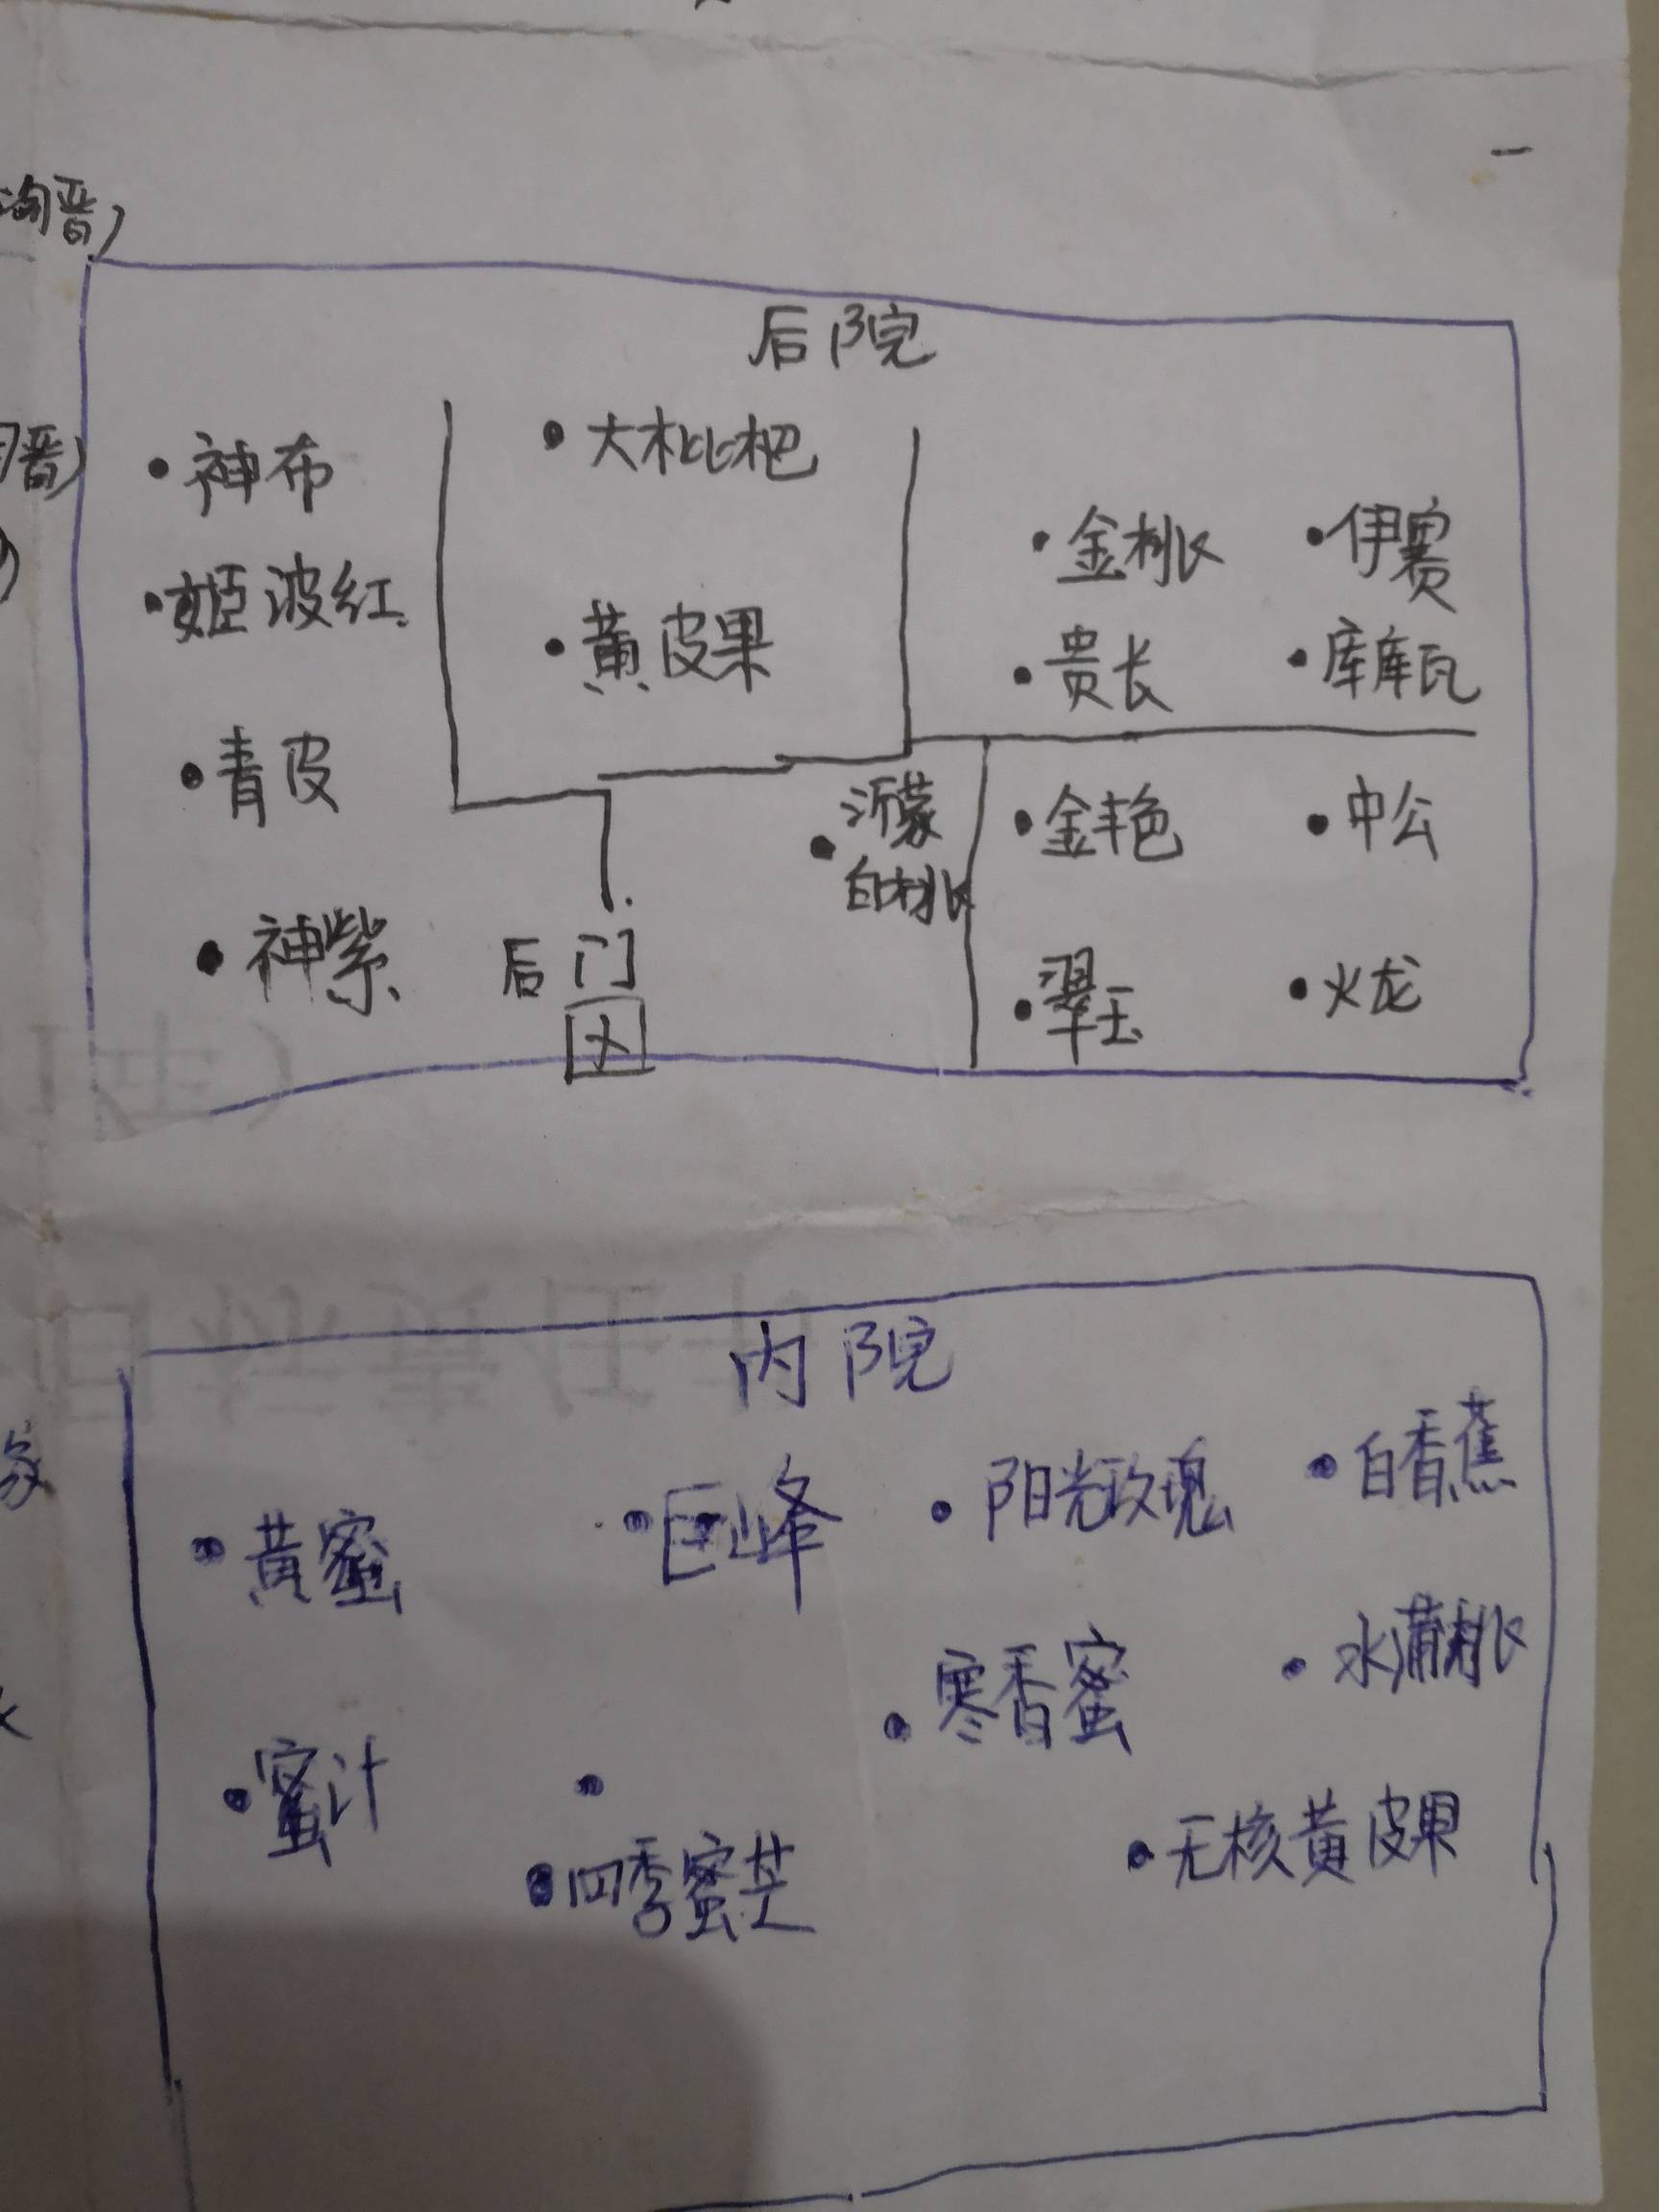 后院
神布
大枇杷
姬波红
黄皮果
金桃
伊赛
贵长
库库瓦
青皮
沂蒙
白桃
金艳
中公
神紫
后门
翠玉
火龙
内院
黄蜜
巨峰
阳光玫瑰
白香蕉
寒香蜜
水蒲桃
蜜汁
四季蜜芒
无核黄皮果